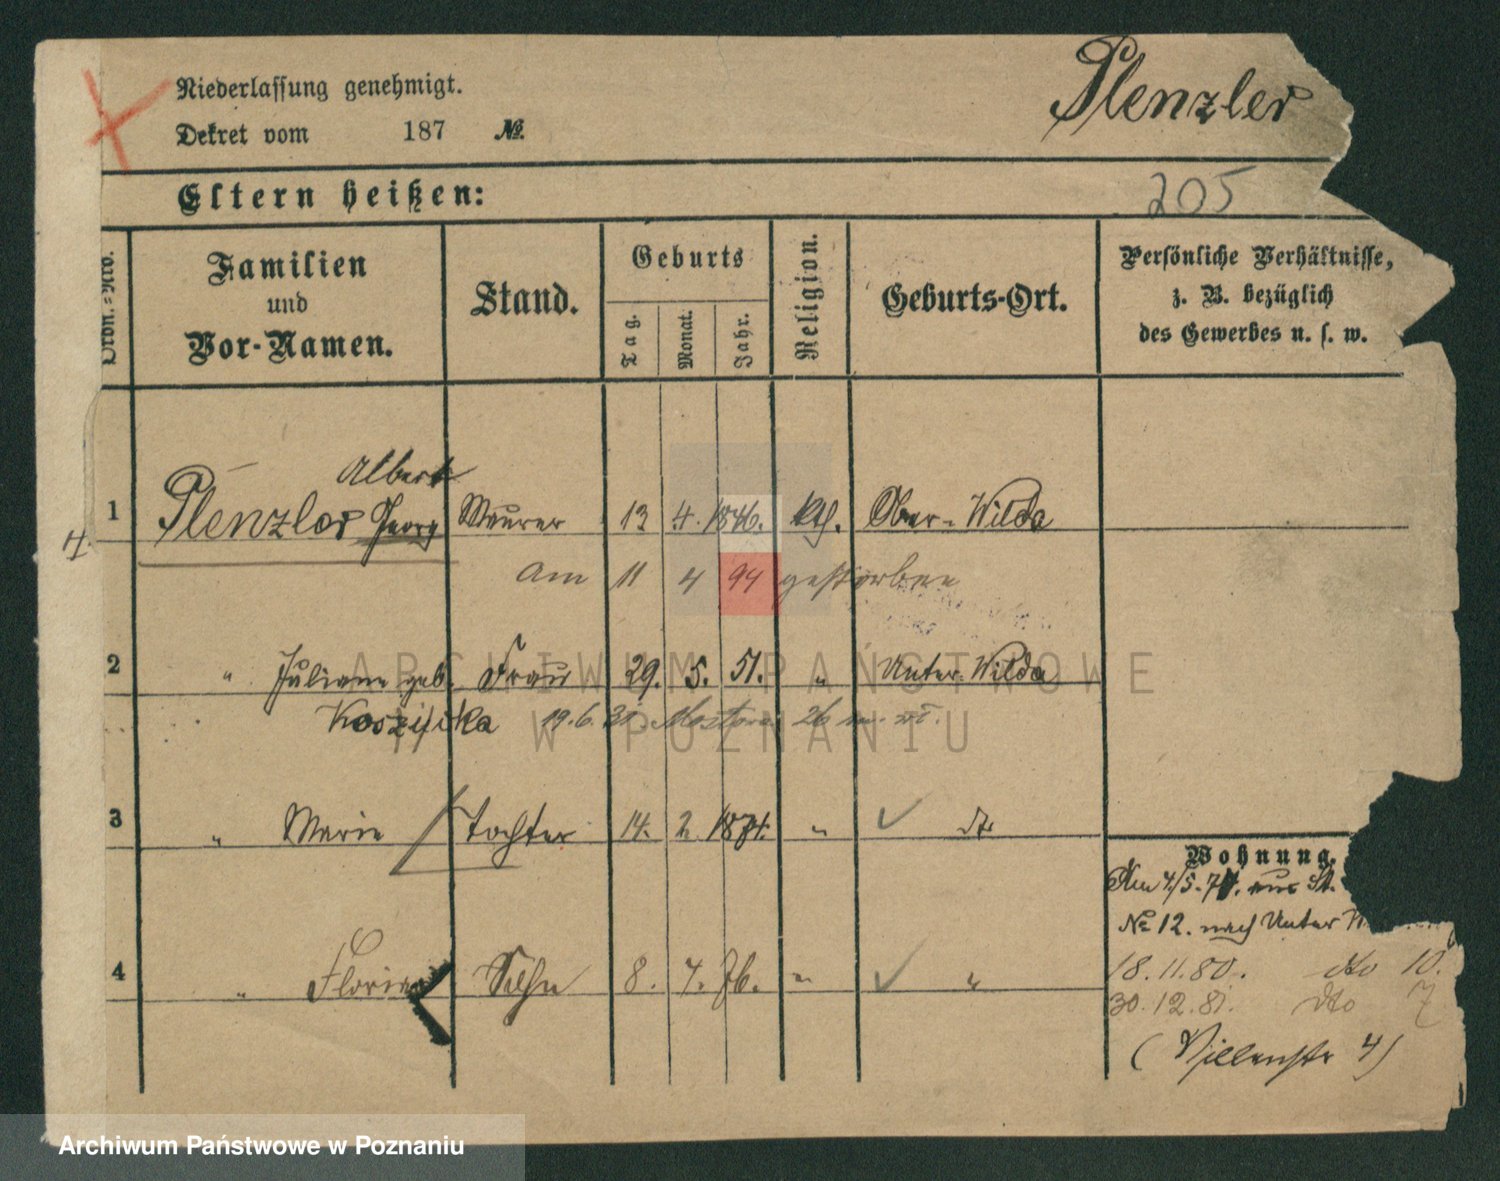 Niederlassung genehmigt.
Plenzler
Dekret vom 187 №.
Eltern heißen:
205
Ordn.=Nro.
Familien
und
Vor-Namen.
Stand.
Geburts
Tag.
Monat.
Jahr.
Religion.
Geburts-Ort.
Persönliche Verhältnisse,
z. B. bezüglich
des Gewerbes u. s. w.
Albert
1 Plenzler Georg Maurer 13 4. 1846. kth. Ober-Wilda
am 11 4 94 gestorben
2 " Juliane geb. Frau 29. 5. 51. " Unter-Wilda
19.6.31
3 " Marie Tochter 14. 2. 1874. " dto
Wohnung.
№ 12. nach Unter
4 " Florian Sohn 8. 4. 76. " "
18.11.80. dto 10.
30.12.81. dto 7
(Villenstr 4)
ARCHIWUM PAŃSTWOWE
W POZNANIU
Archiwum Państwowe w Poznaniu